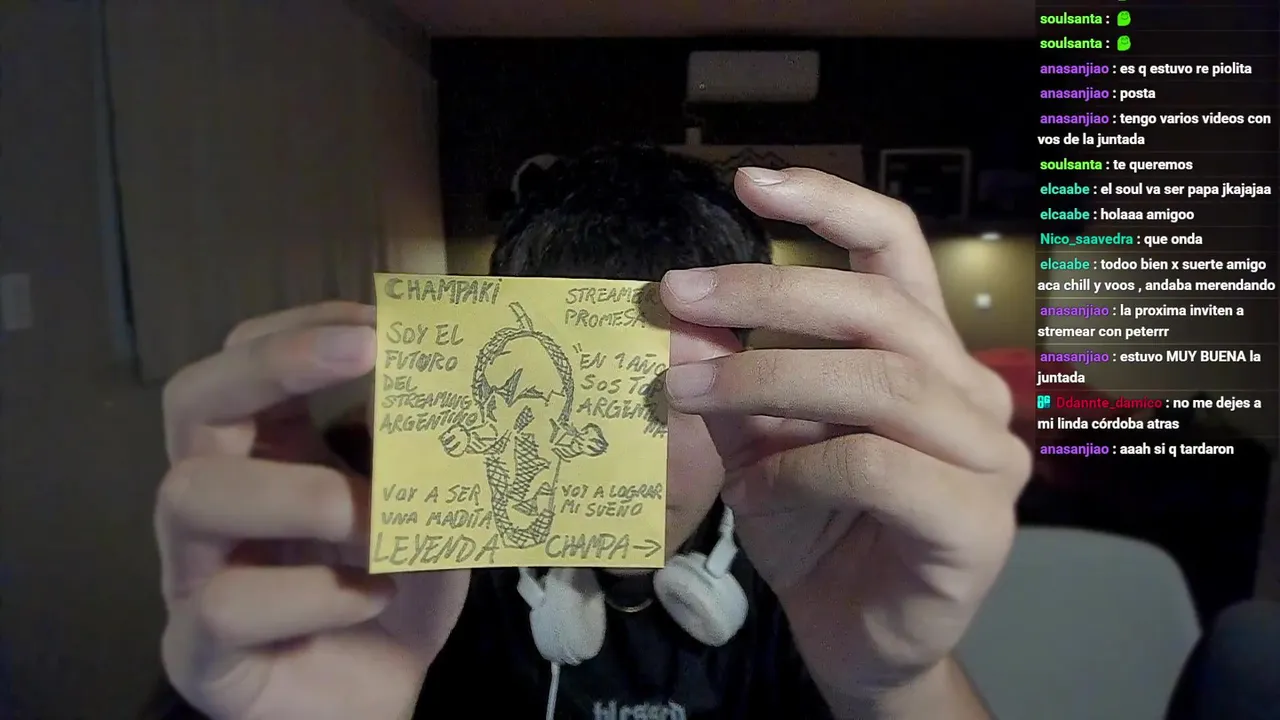 CHAMPAKi
STREAMER
PROMESA
SOY EL
FUTURO
DEL
STREAMING
ARGENTINO
"EN 1 AÑO
SOS TOP
ARGENTI
NA
VOY A SER
UNA MADITA
LEYENDA
VOY A LOGRAR
MI SUEÑO
CHAMPA→
blessed
soulsanta :
soulsanta :
anasanjiao : es q estuvo re piolita
anasanjiao : posta
anasanjiao : tengo varios videos con
vos de la juntada
soulsanta : te queremos
elcaabe : el soul va ser papa jkajajaa
elcaabe : holaaa amigoo
Nico_saavedra : que onda
elcaabe : todoo bien x suerte amigo
aca chill y voos , andaba merendando
anasanjiao : la proxima inviten a
stremear con peterrr
anasanjiao : estuvo MUY BUENA la
juntada
Ddannte_damico : no me dejes a
mi linda córdoba atras
anasanjiao : aaah si q tardaron